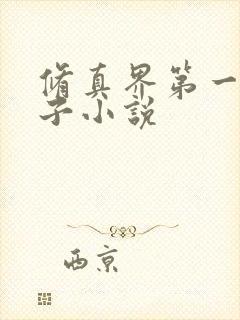 脩真界第一
子小說
西京